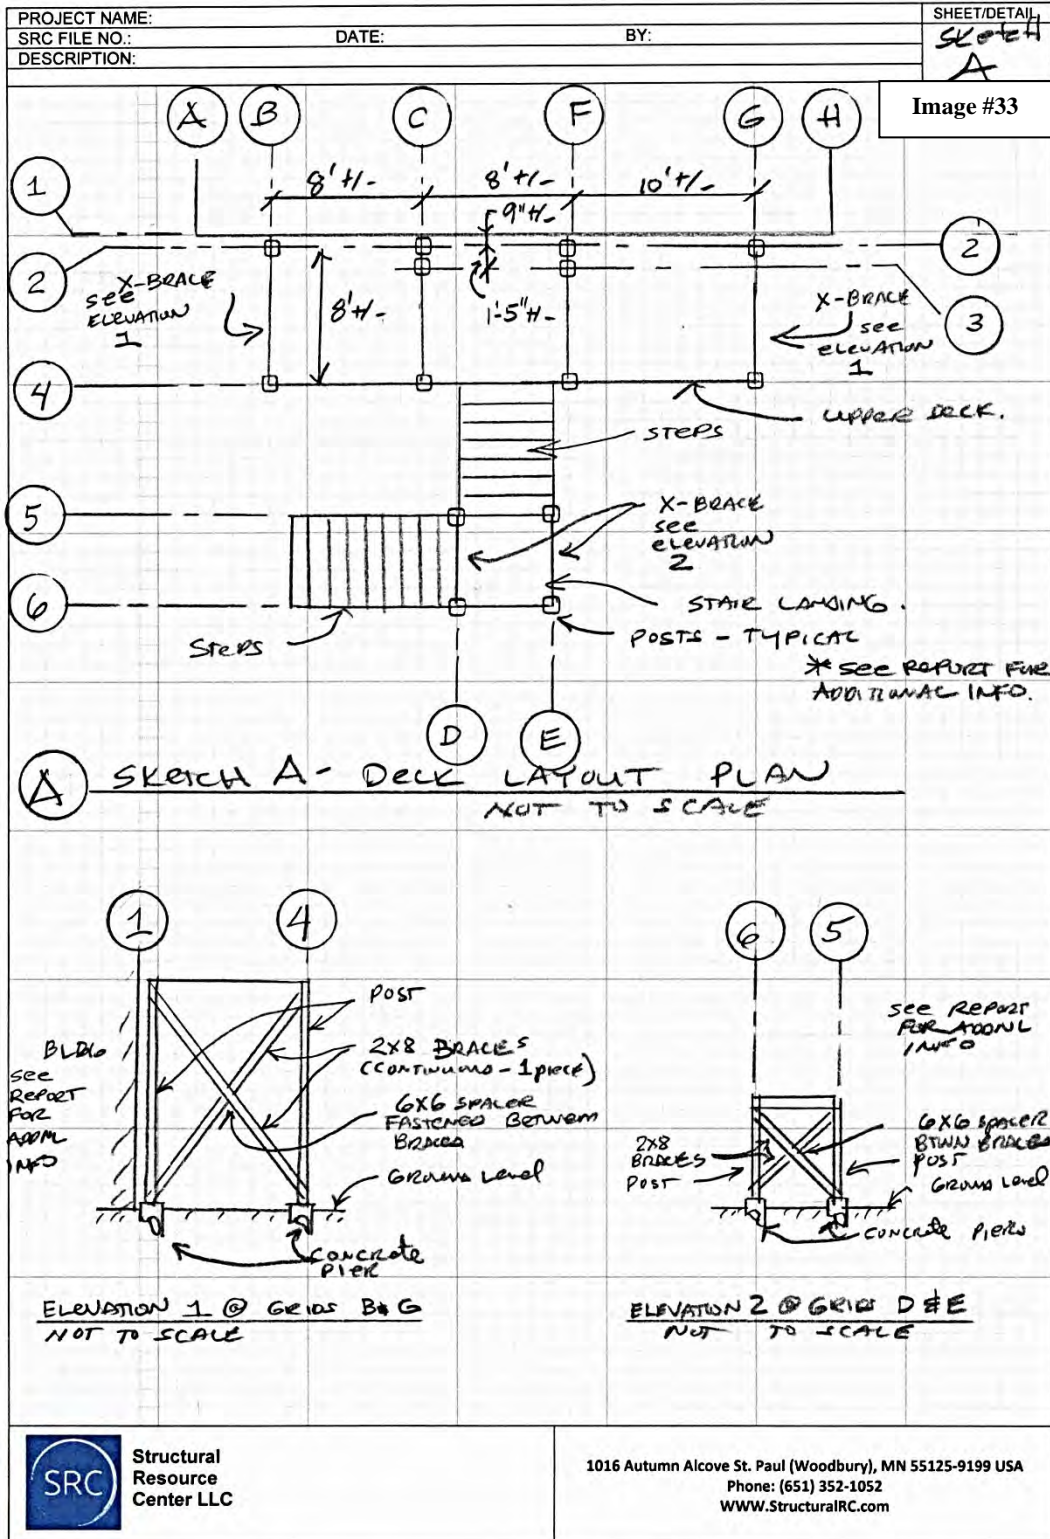 PROJECT NAME:
SRC FILE NO.: DATE: BY:
DESCRIPTION:
SHEET/DETAIL
SKETCH
A
Image #33
A B C F G H
1
8' +/- 8' +/- 10' +/-
9" +/-
2 2
X-BRACE
SEE
ELEVATION
1
8' +/-
1'-5" +/-
X-BRACE
SEE
ELEVATION
1
3
4
UPPER DECK.
STEPS
5
X-BRACE
SEE
ELEVATION
2
6
STAIR LANDING.
STEPS
POSTS - TYPICAL
* SEE REPORT FOR
ADDITIONAL INFO.
D E
A SKETCH A - DECK LAYOUT PLAN
NOT TO SCALE
1 4
POST
BLDG
2X8 BRACES
(CONTINUOUS - 1 PIECE)
SEE
REPORT
FOR
ADDNL
INFO
6X6 SPACER
FASTENED BETWEEN
BRACES
GROUND LEVEL
CONCRETE
PIER
ELEVATION 1 @ GRIDS B & G
NOT TO SCALE
6 5
SEE REPORT
FOR ADDNL
INFO
2X8
BRACES
POST
6X6 SPACER
BTWN BRACES
POST
GROUND LEVEL
CONCRETE PIERS
ELEVATION 2 @ GRIDS D & E
NOT TO SCALE
SRC
Structural
Resource
Center LLC
1016 Autumn Alcove St. Paul (Woodbury), MN 55125-9199 USA
Phone: (651) 352-1052
WWW.StructuralRC.com